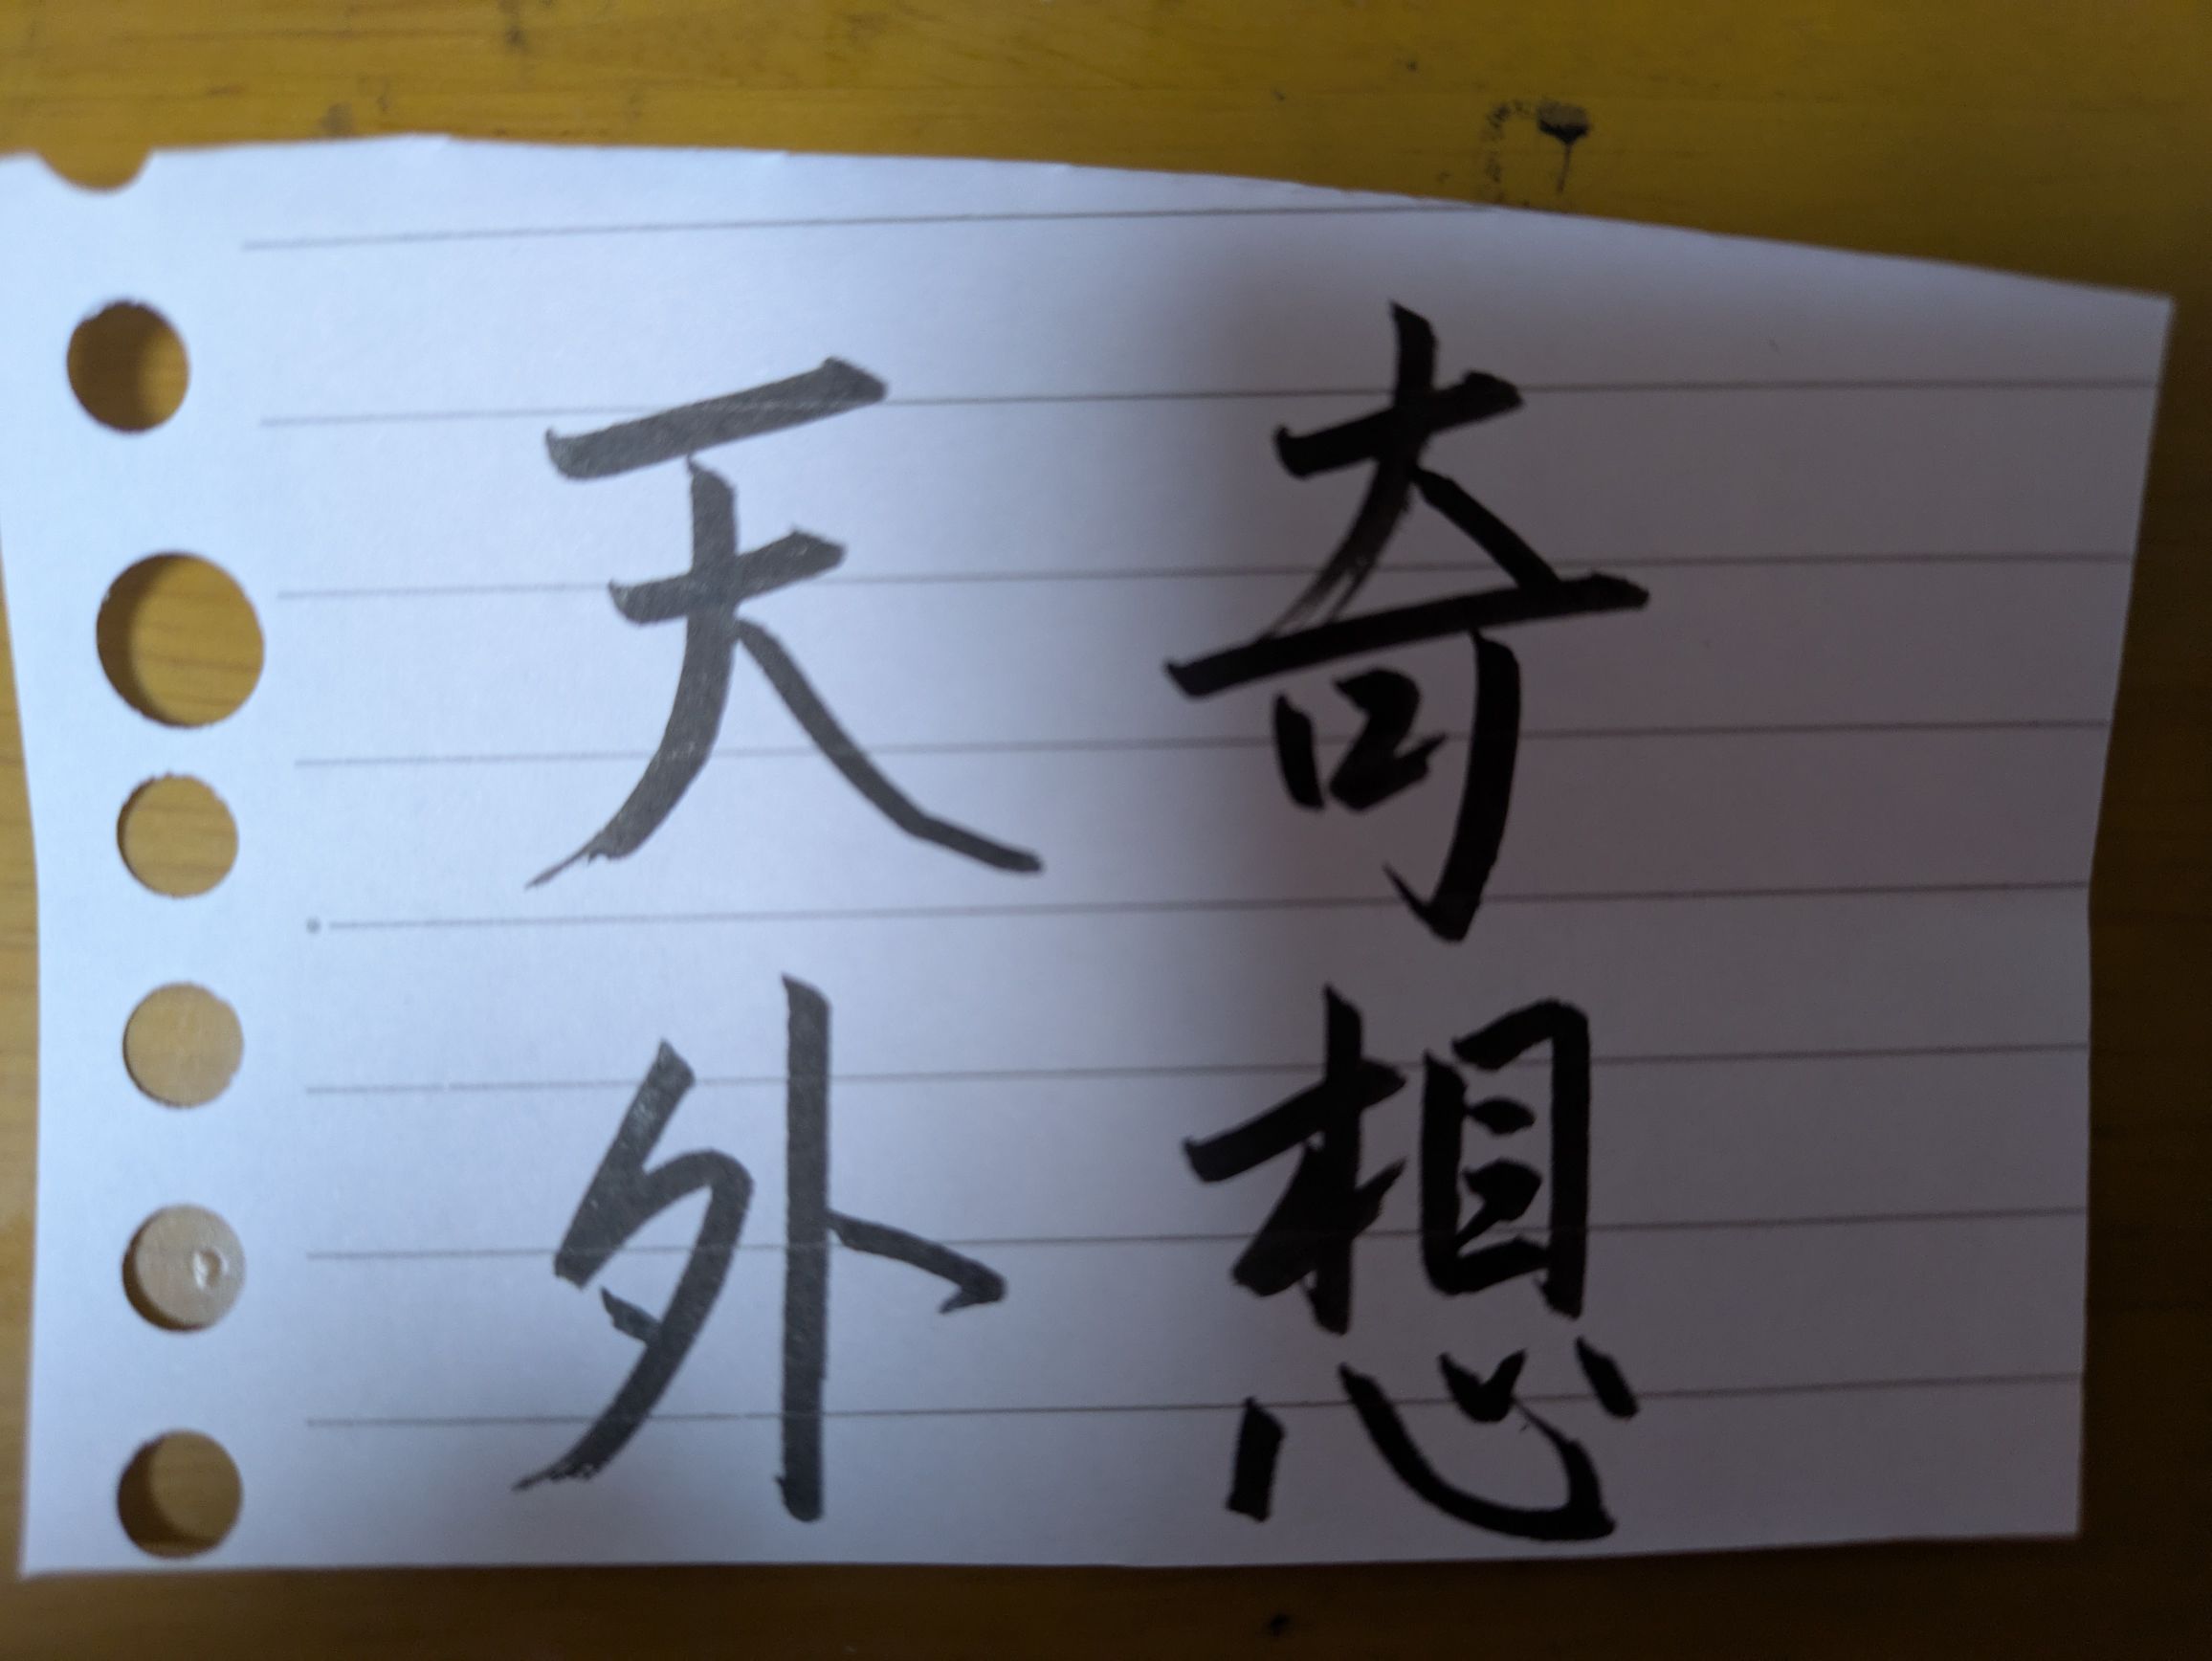 奇想
天外